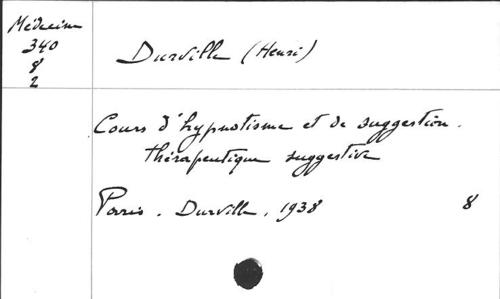 Médecine
340
8
2
Durville (Henri)
Cours d'hypnotisme et de suggestion.
thérapeutique suggestive
Paris. Durville, 1938 8